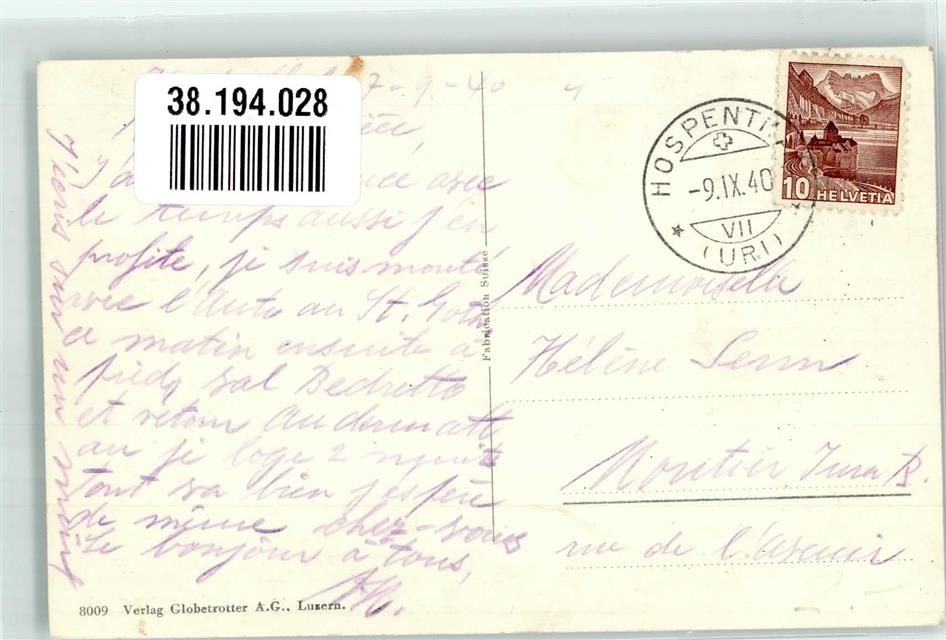 38.194.028
7-9-40
avec
le temps aussi j'en
profite, je suis monté
avec l'auto au St. Goth
ce matin ensuite à
pied, val Bedretto
et retour Andermatt
au je loge 2 nuits
tout va bien j'espère
de même chez-vous
bonjour à tous,
J'écris sur un
8009 Verlag Globetrotter A.G., Luzern.
Fabrication Suisse
HOSPENT
-9.IX.40
VII
(URI)
10 HELVETIA
Mademoiselle
Hélène
Moutier Jura B.
rue de l'avenir